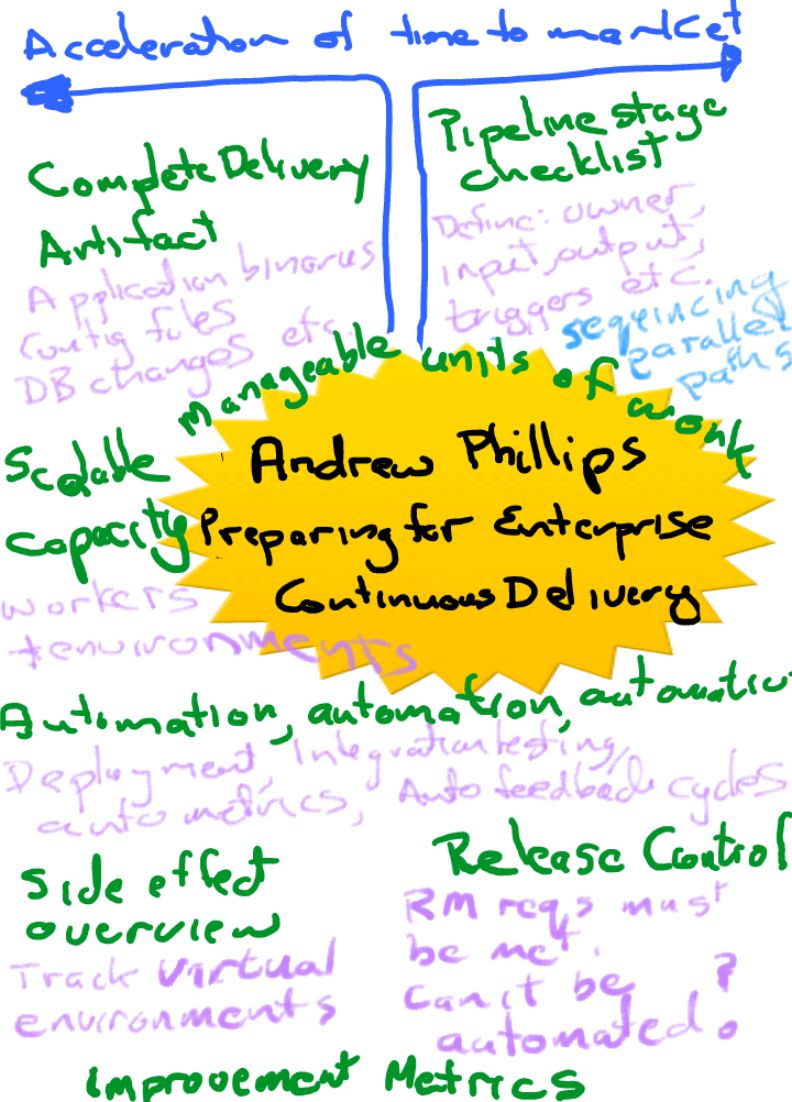 Acceleration of time to market
Complete Delivery
Artifact
Application binaries
Config files
DB changes etc.
Pipeline stage
checklist
Define: owner,
input, output,
triggers etc.
seqeincing
parallel
paths
Manageable units of work
Andrew Phillips
Preparing for Enterprise
Continuous Delivery
Scalable
capacity
workers
+ environments
Automation, automation, automation
Deployment, Integration testing,
auto metrics, Auto feedback cycles
Side effect
overview
Track virtual
environments
Release Control
RM reqs must
be met.
Can it be
automated?
Improvement Metrics